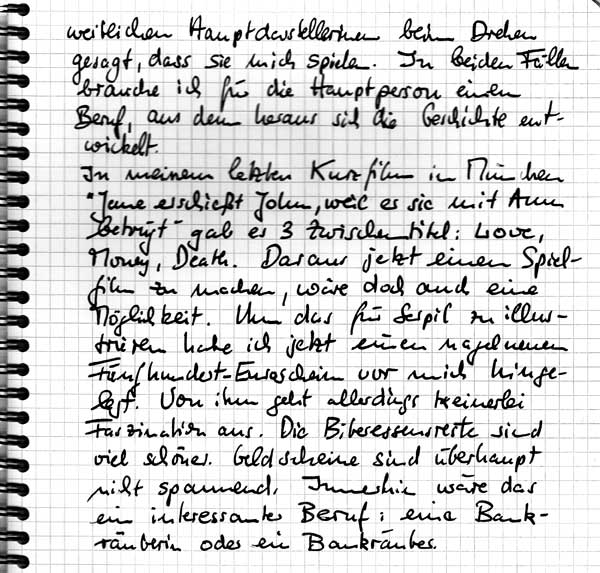 weiblichen Hauptdarstellerinnen beim Drehen
gesagt, dass sie mich spielen. In beiden Fällen
brauche ich für die Hauptperson einen
Beruf, aus dem heraus sich die Geschichte ent-
wickelt.
In meinem letzten Kurzfilm in München
"Jane erschießt John, weil er sie mit Ann
betrügt" gab es 3 Zwischentitel: Love,
Money, Death. Daraus jetzt einen Spiel-
film zu machen, wäre doch auch eine
Möglichkeit. Um das für Sespil zu illus-
trieren habe ich jetzt einen nagelneuen
Fünfhundert-Euroschein vor mich hinge-
legt. Von ihm geht allerdings keinerlei
Faszination aus. Die Biberessensreste sind
viel schöner. Geldscheine sind überhaupt
nicht spannend. Immerhin wäre das
ein interessanter Beruf: eine Bank-
räuberin oder ein Bankräuber.